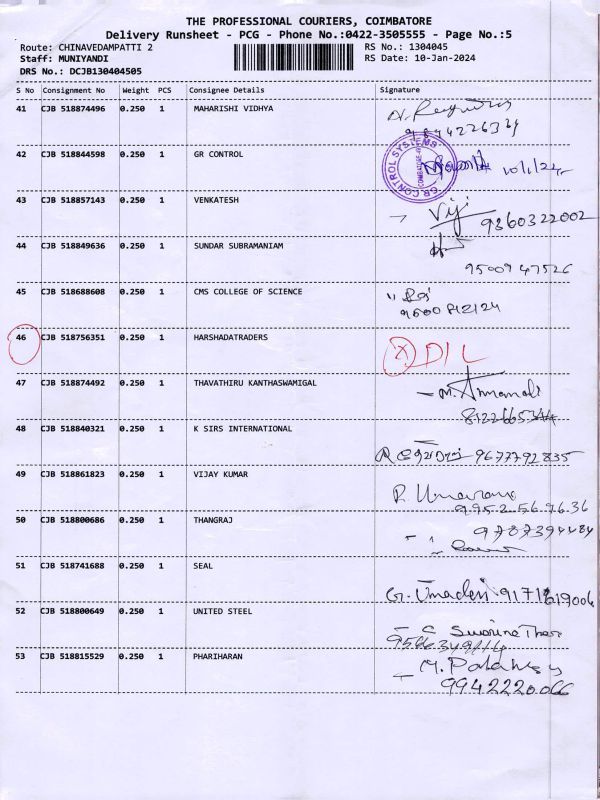 THE PROFESSIONAL COURIERS, COIMBATORE
Delivery Runsheet - PCG - Phone No.:0422-3505555 - Page No.:5
Route: CHINAVEDAMPATTI 2 RS No.: 1304045
Staff: MUNIYANDI RS Date: 10-Jan-2024
DRS No.: DCJB130404505
S No Consignment No Weight PCS Consignee Details Signature
41 CJB 518874496 0.250 1 MAHARISHI VIDHYA
42 CJB 518844598 0.250 1 GR CONTROL
GR CONTROL SYSTEMS
10/1/24
43 CJB 518857143 0.250 1 VENKATESH
Viji
9360322002
44 CJB 518849636 0.250 1 SUNDAR SUBRAMANIAM
9500947526
45 CJB 518688608 0.250 1 CMS COLLEGE OF SCIENCE
46 CJB 518756351 0.250 1 HARSHADATRADERS
X D/L
47 CJB 518874492 0.250 1 THAVATHIRU KANTHASWAMIGAL
8122665344
48 CJB 518840321 0.250 1 K SIRS INTERNATIONAL
9677792835
49 CJB 518861823 0.250 1 VIJAY KUMAR
995.2.56.76.36
50 CJB 518800686 0.250 1 THANGRAJ
9787394484
51 CJB 518741688 0.250 1 SEAL
G. Umadevi
52 CJB 518800649 0.250 1 UNITED STEEL
53 CJB 518815529 0.250 1 PHARIHARAN
9942220066